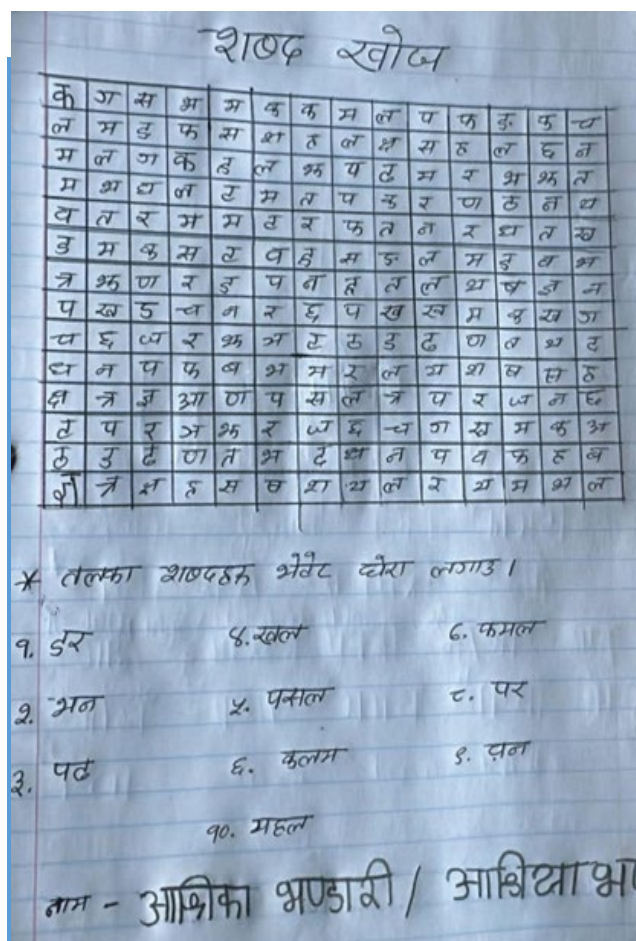 शब्द खोज
क ग स भ म क क म ल प फ ङ फ च
ल म ड फ स श ह ल क्ष स ह ल छ न
म ल ग क ह ल झ प ट म र भ झ त
म भ घ ल ट म त प क र ण ठ न थ
व त र म म ट र फ त न र ध त ख
ड म क स ट व ह स ङ ल म ड व भ
त्र झ ण र ड प न ह त ल श ष ज्ञ न
प ख ड च न र छ प ख ख म क ख ग
च छ ज र झ ञ ट ठ ड ढ ण त थ द
ध न प फ ब भ म र ल य श ष स ह
क्ष त्र ज्ञ आ ण प स ल त्र प र ज न छ
ट प र ञ झ र ज छ च ग ख म क अ
ठ ड ढ ण त भ द ध न प व फ ह ब
ज्ञ त्र क्ष ह स ष श य ल र य म भ ल
* तलका शब्दहरू भेटेर घेरा लगाउ।
१. डर ४. खल ७. कमल
२. भन ५. पसल ८. पर
३. पढ ६. कलम ९.
१०. महल
नाम - आश्रिका भण्डारी /